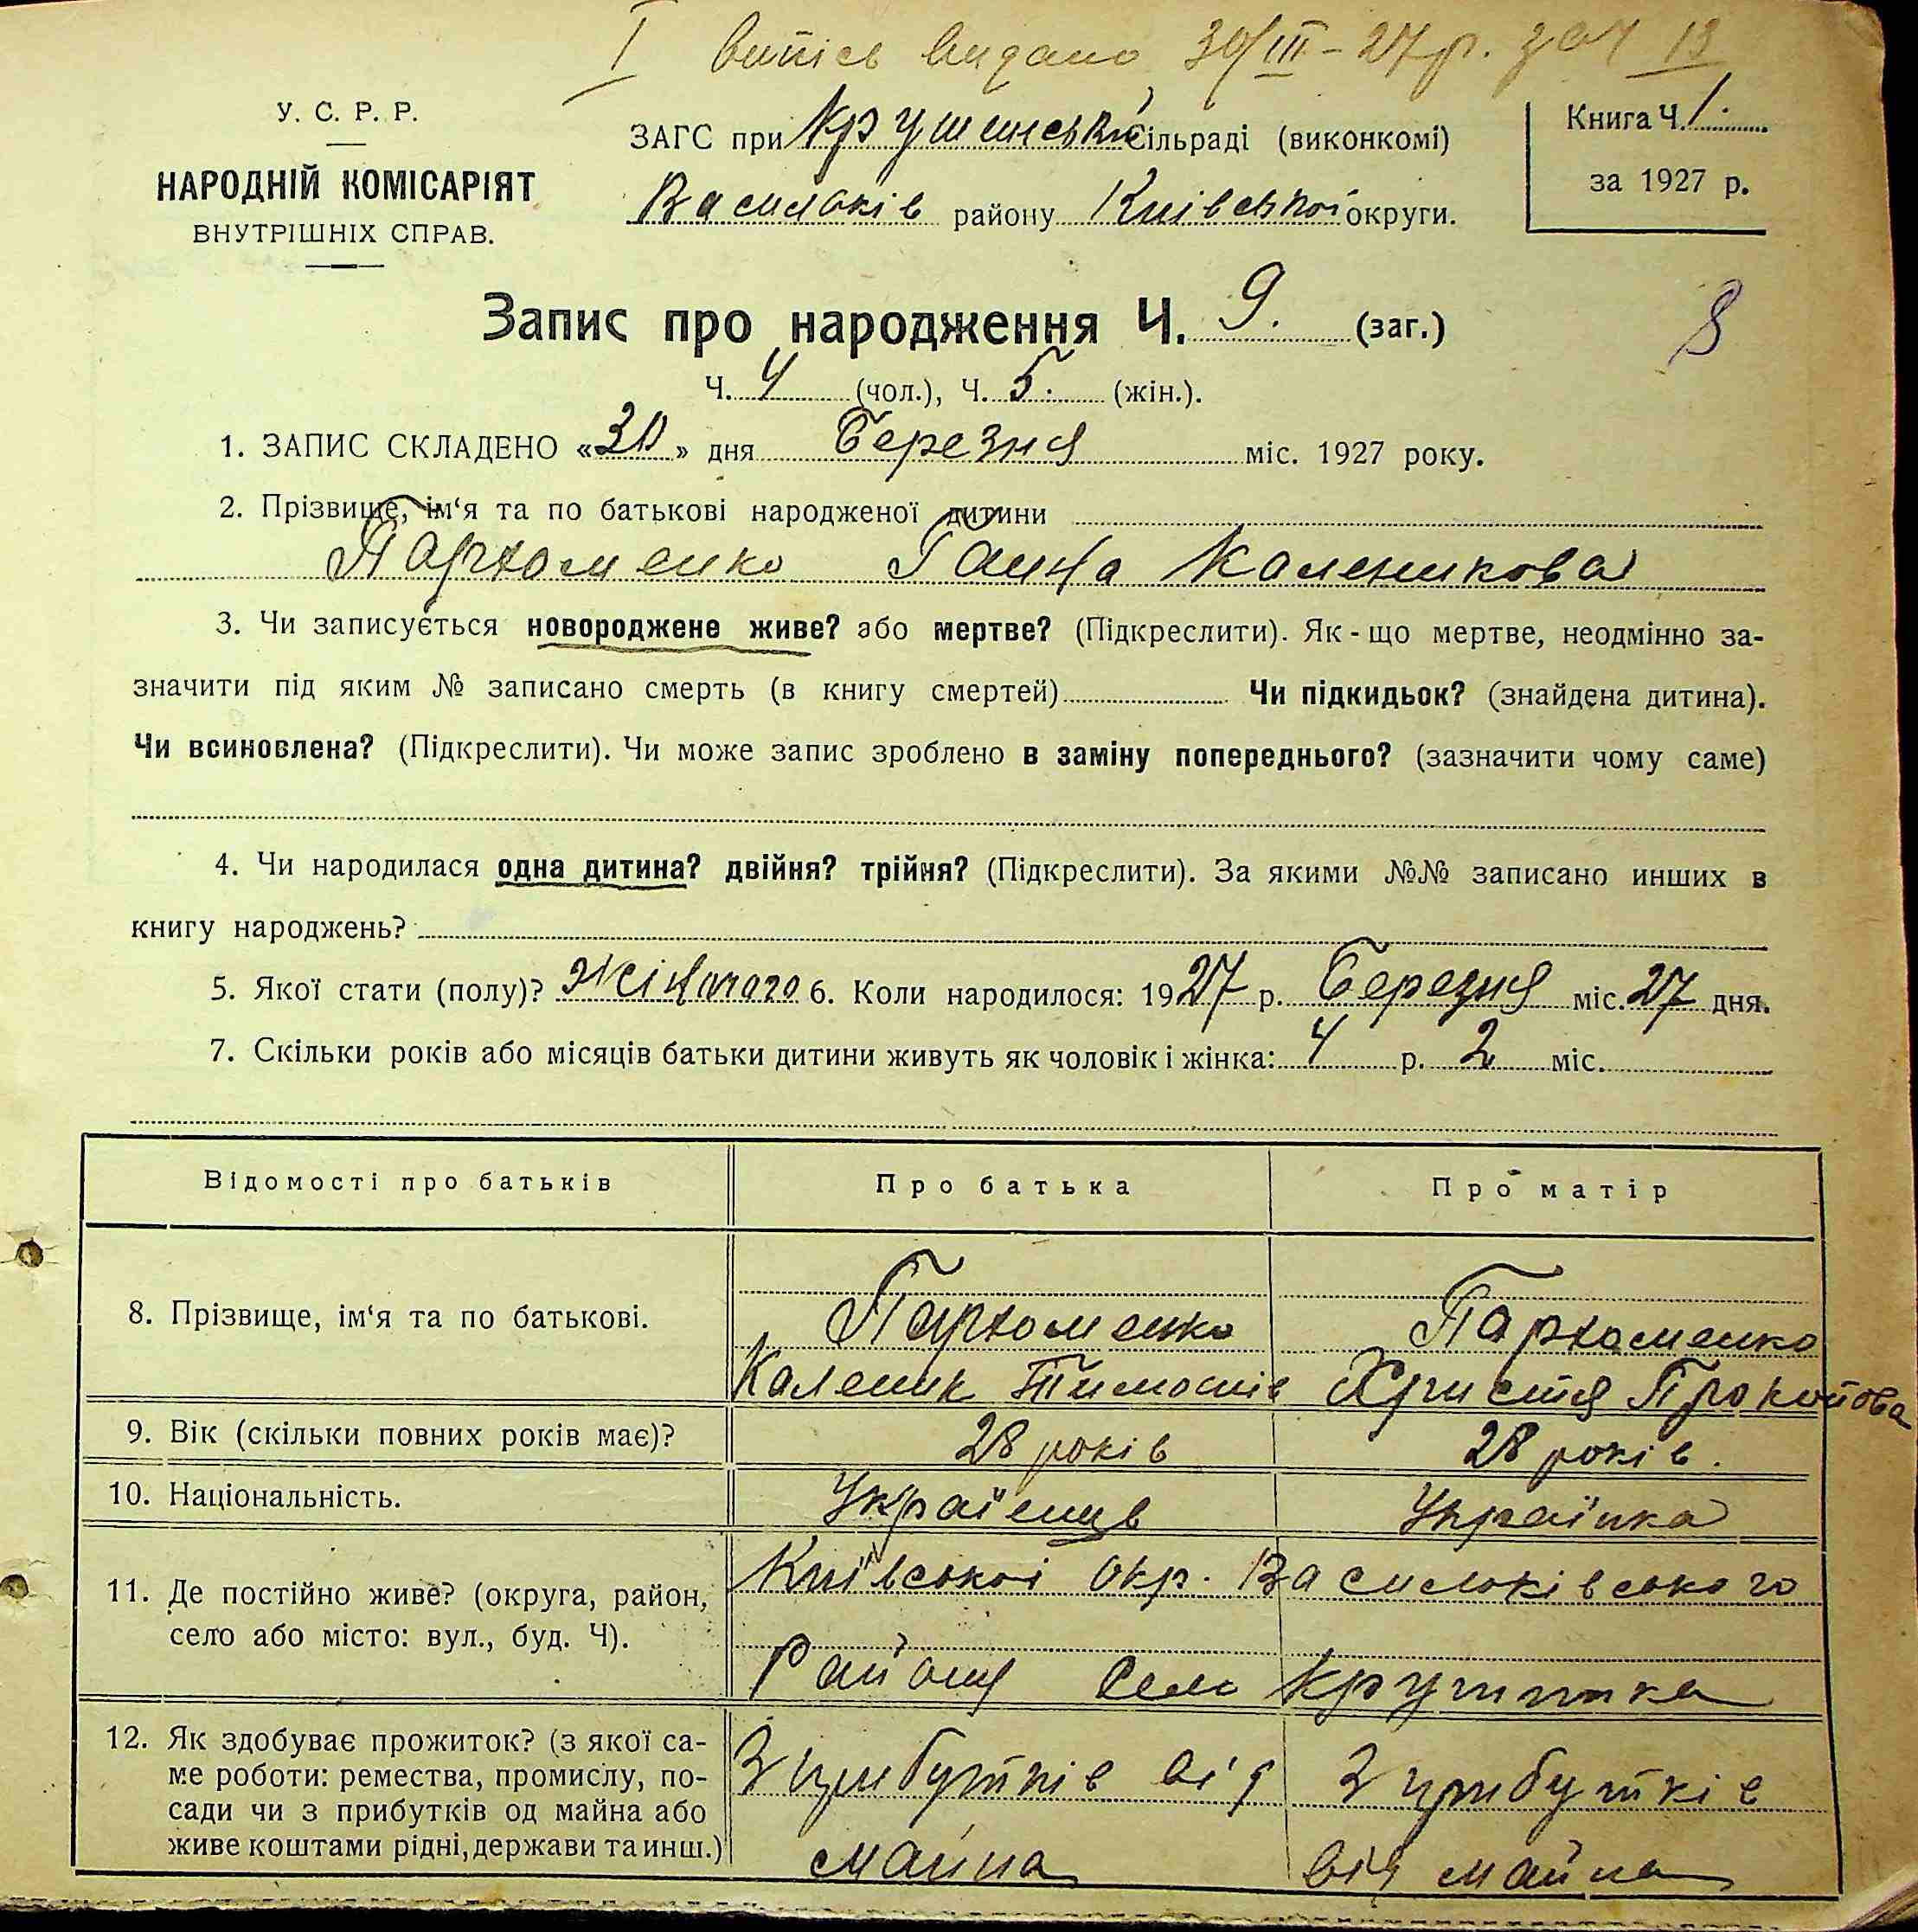 I випись видано 30/III-27р. за Ч 13
У. С. Р. Р.
НАРОДНІЙ КОМІСАРІЯТ
ВНУТРІШНІХ СПРАВ.
ЗАГС при Крушинській Сільраді (виконкомі)
Васильків району Київської округи.
Книга Ч. 1.
за 1927 р.
Запис про народження Ч. 9. (заг.)
8
Ч. 4 (чол.), Ч. 5. (жін.).
1. ЗАПИС СКЛАДЕНО «30» дня Березня міс. 1927 року.
2. Прізвище, ім‘я та по батькові народженої дитини
Пархоменко Ганна Каленикова
3. Чи записується новороджене живе? або мертве? (Підкреслити). Як-що мертве, неодмінно за-
значити під яким № записано смерть (в книгу смертей) Чи підкидьок? (знайдена дитина).
Чи всиновлена? (Підкреслити). Чи може запис зроблено в заміну попереднього? (зазначити чому саме)
4. Чи народилася одна дитина? двійня? трійня? (Підкреслити). За якими №№ записано инших в
книгу народжень?
5. Якої стати (полу)? Жіночого 6. Коли народилося: 1927 р. Березня міс. 27 дня.
7. Скільки років або місяців батьки дитини живуть як чоловік і жінка: 4 р. 2 міс.
Відомості про батьків Про батька Про матір
8. Прізвище, ім‘я та по батькові.
Пархоменко Пархоменко
Каленик Тимошів Христя Прокопова
9. Вік (скільки повних років має)? 28 років 28 років.
10. Національність. Українець Українка
11. Де постійно живе? (округа, район,
село або місто: вул., буд. Ч).
Київської окр. Васильківського
Району село Крушинка
12. Як здобуває прожиток? (з якої са-
ме роботи: ремества, промислу, по-
сади чи з прибутків од майна або
живе коштами рідні, держави та инш.)
З прибутків від З прибутків
майна від майна